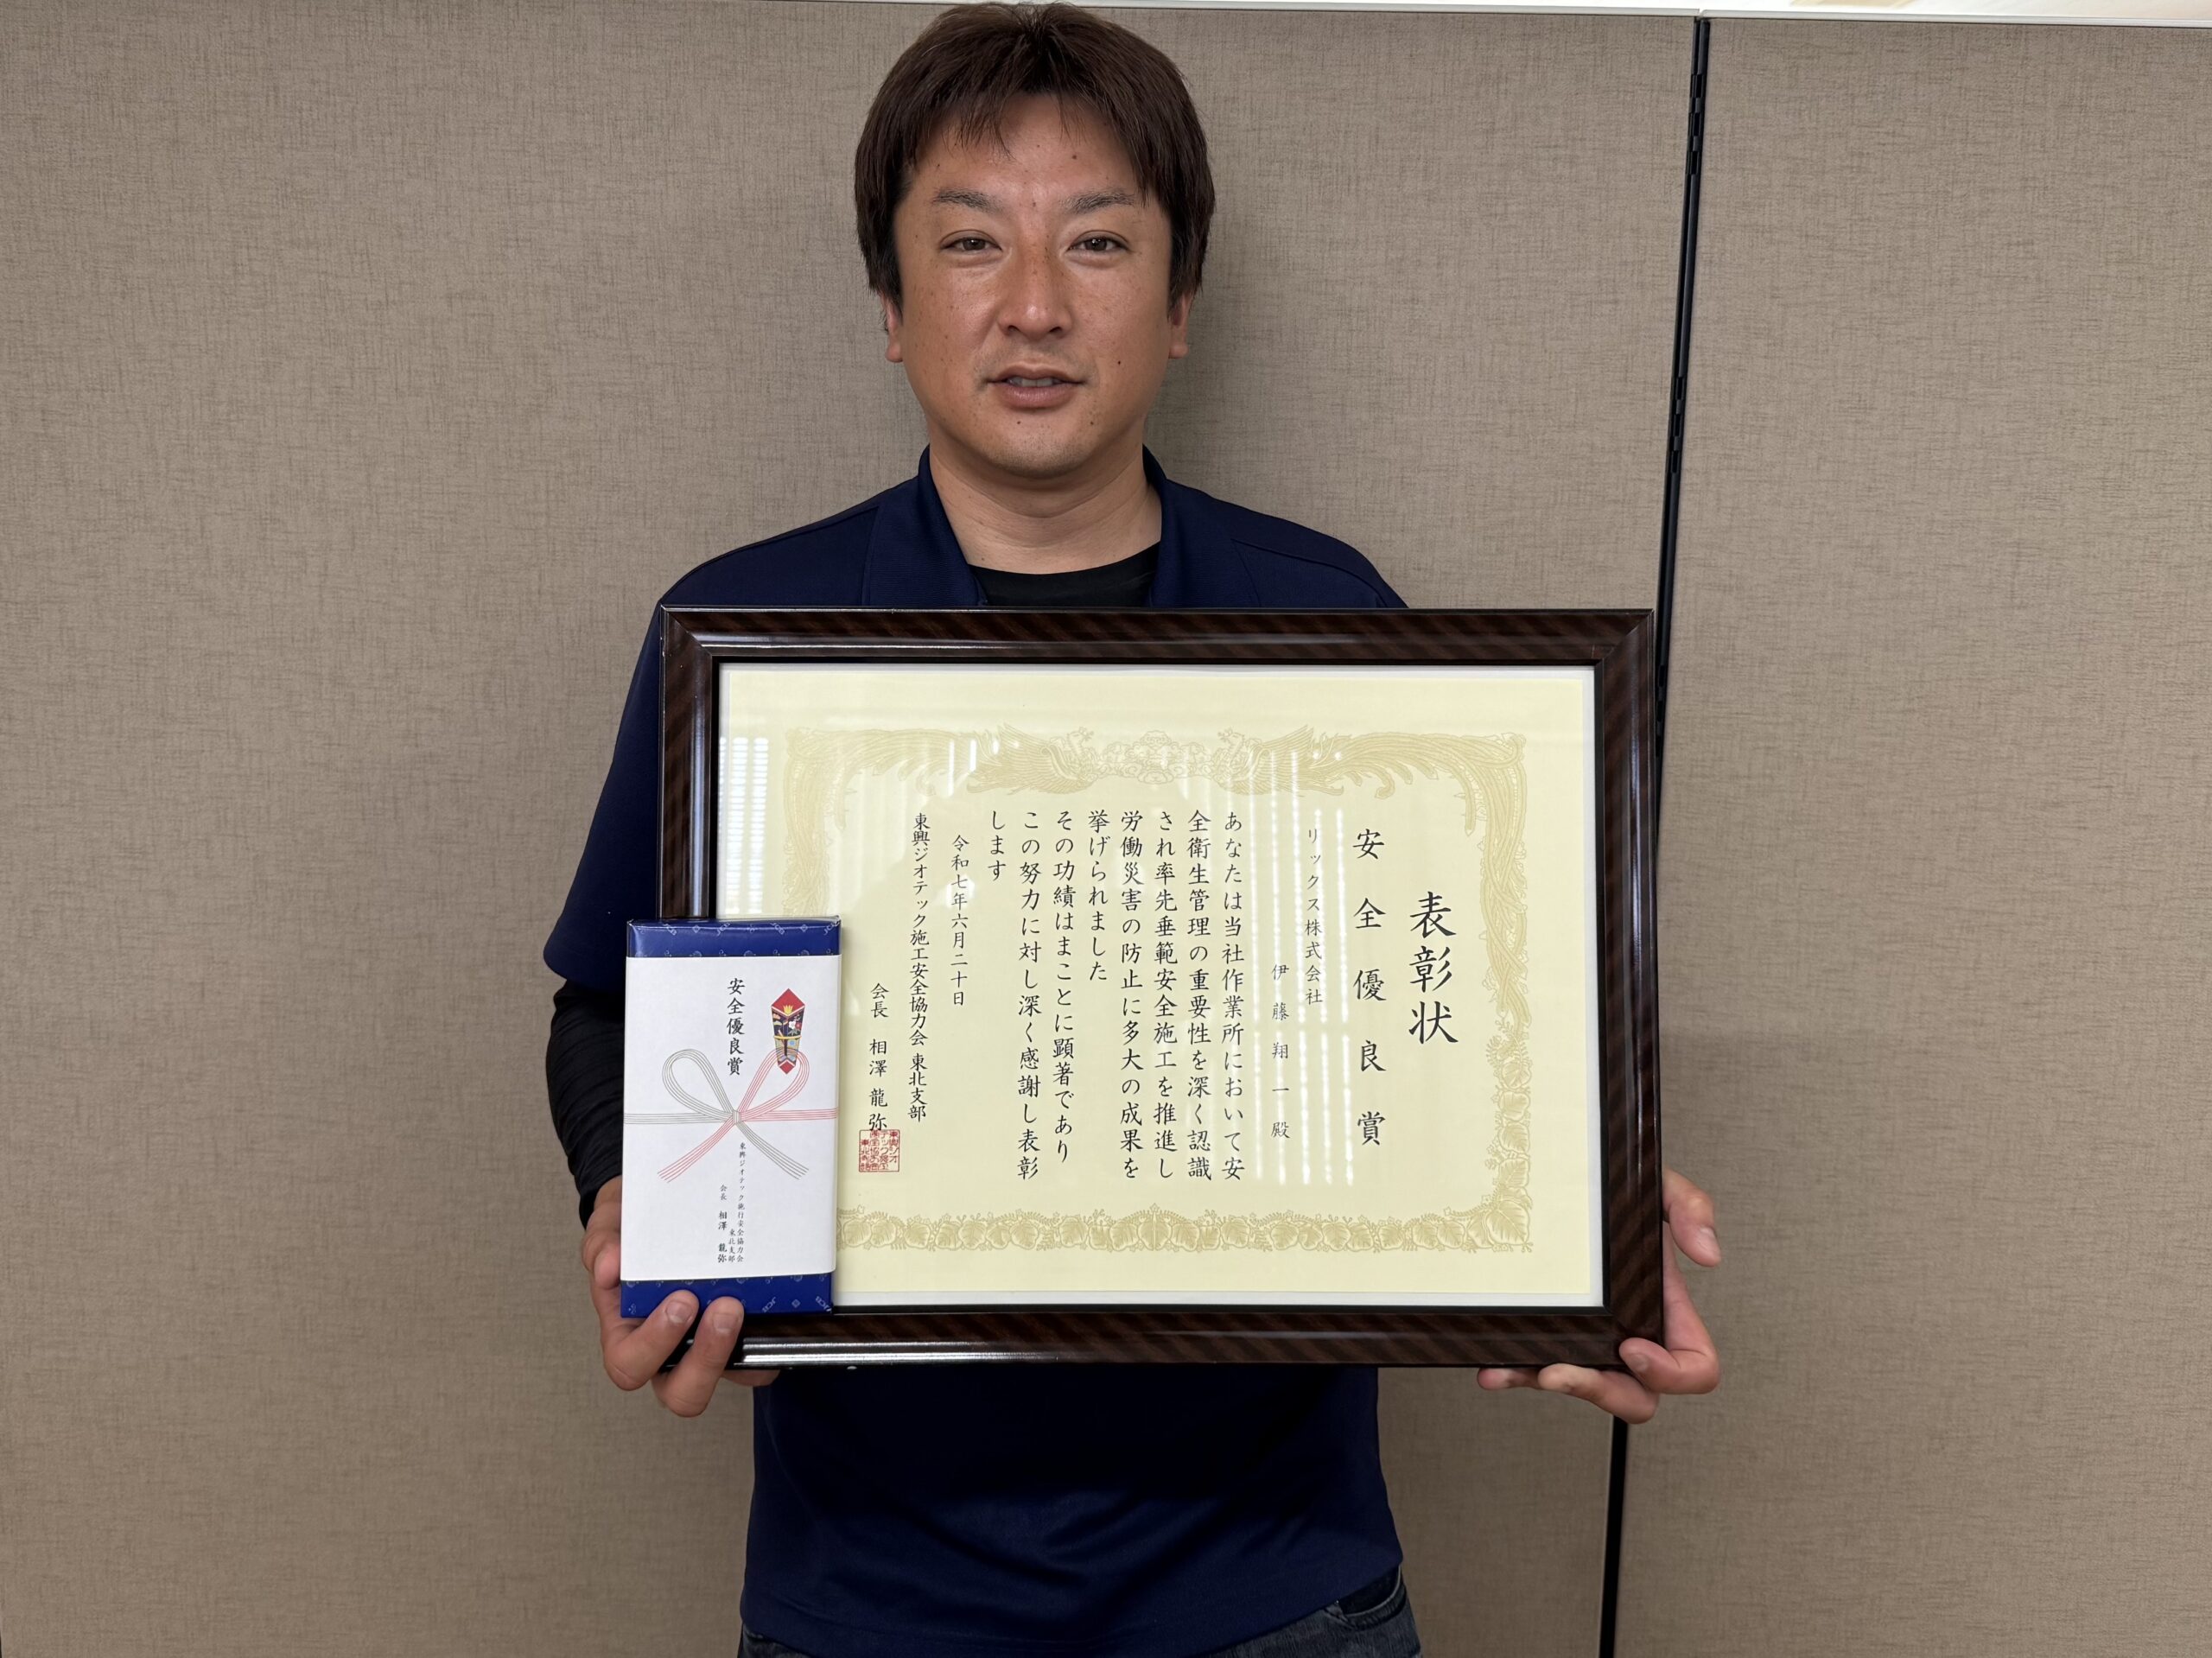 表彰状
安全優良賞
リックス株式会社
伊藤翔一殿
あなたは当社作業所において安
全衛生管理の重要性を深く認識
され率先垂範安全施工を推進し
労働災害の防止に多大の成果を
挙げられました
その功績はまことに顕著であり
この努力に対し深く感謝し表彰
します
令和七年六月二十日
東興ジオテック施工安全協力会 東北支部
会長 相澤龍弥
安全優良賞
東興ジオテック施行安全協力会
東北支部
会長 相澤 龍弥
JCB